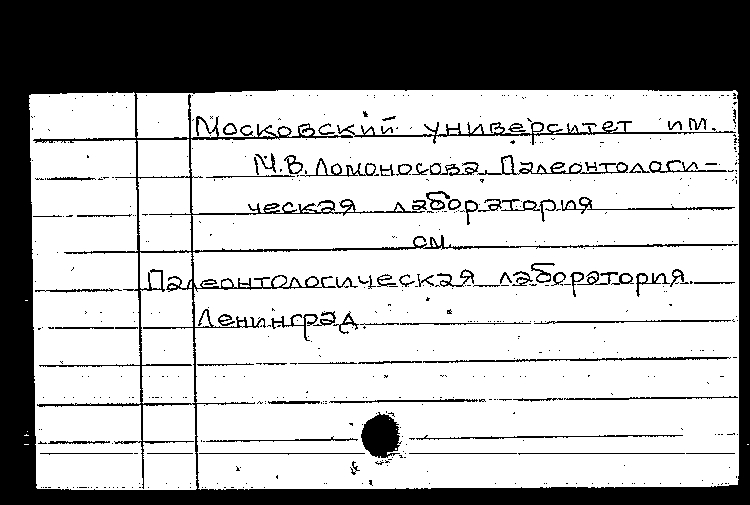 Московский университет им.
М.В. Ломоносова. Палеонтологи-
ческая лаборатория
см.
Палеонтологическая лаборатория.
Ленинград.